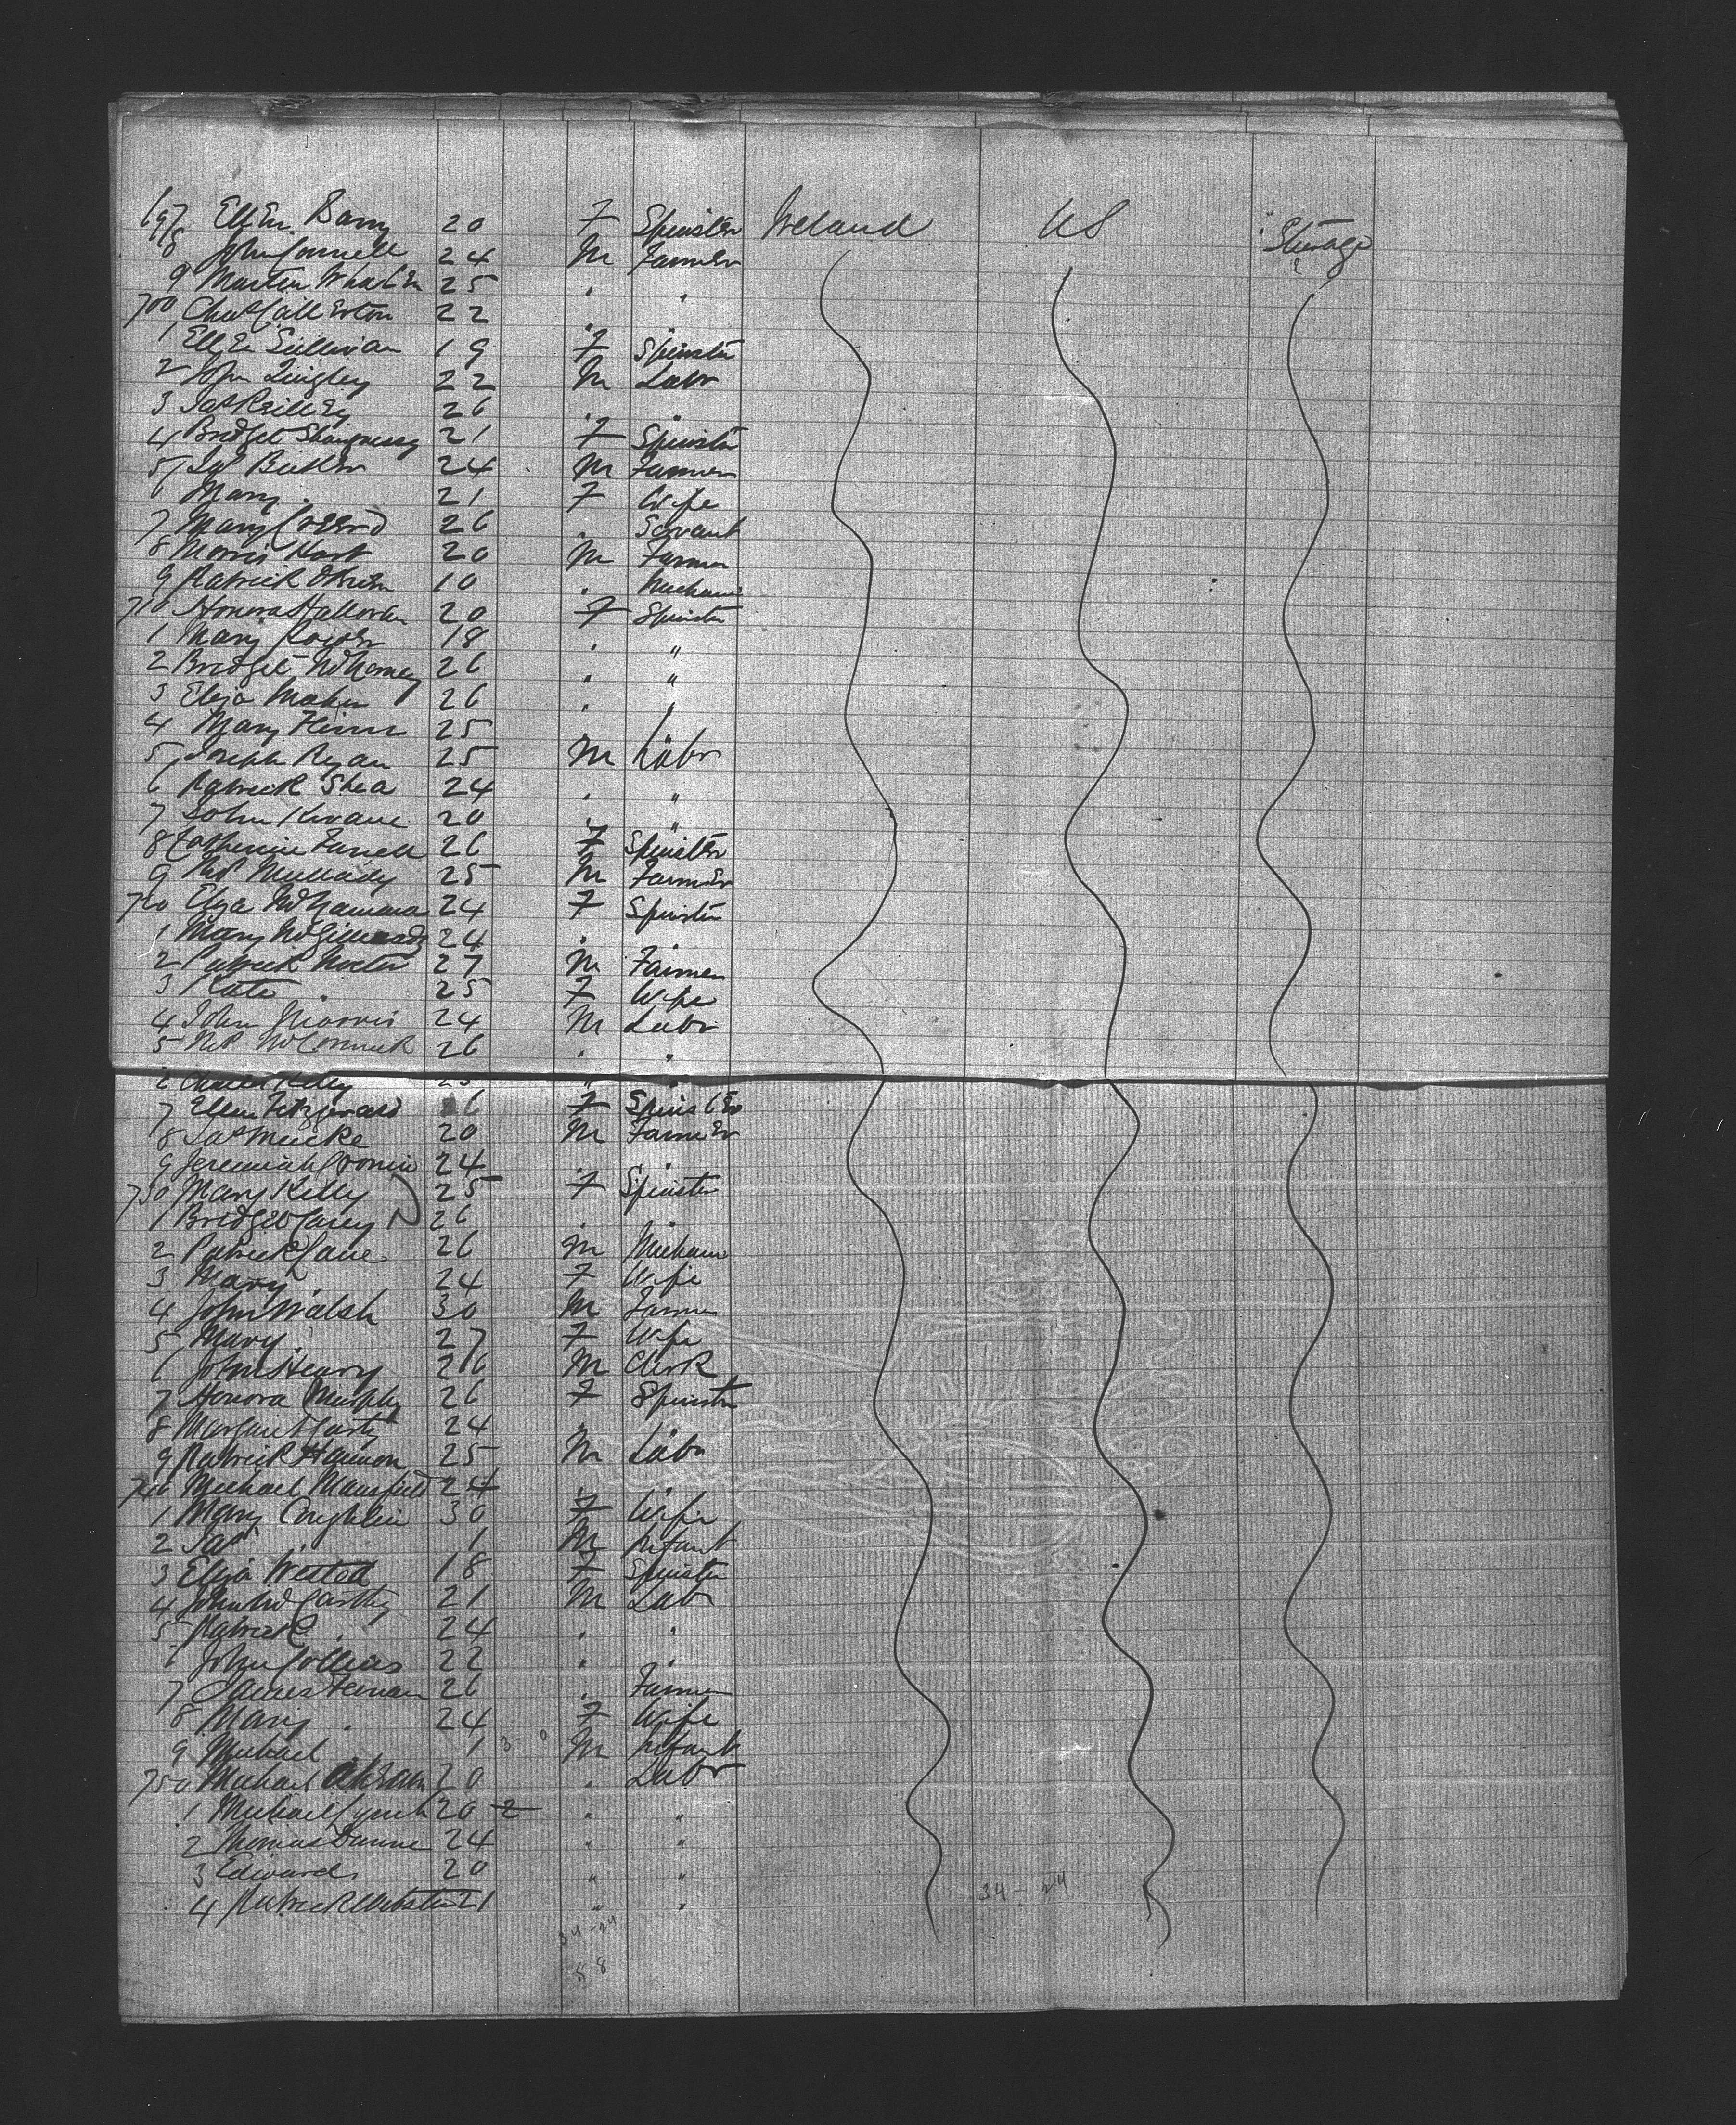 697 Ellen Barry 20 F Spinster Ireland US Steerage
8 John Connell 24 M Farmer
9 Martin Whalen 25 " "
700 Chas Callerton 22 " "
1 Ellen Sullivan 19 F Spinster
2 John Quigley 22 M Labr
3 Jas Reilley 26 " "
4 Bridget Shaugnessy 21 F Spinster
5 Jas 24 M Farmer
6 Mary " 21 F Wife
7 Mary 26 Servant
8 Morris Hart 20 M Farmer
9 Patrick OBrien 10 " Mechanic
710 Honora Halloran 20 F Spinster
1 Mary 18 " "
2 Bridget 26 " "
3 Eliza Maher 26 " "
4 Mary 25 " "
5 Joseph Ryan 25 M Labr
6 Patrick Shea 24 " "
7 John Kirvane 20 " "
8 Catherine Farrell 26 F Spinster
9 Mullady 25 M Farmer
720 Eliza McNamara 24 F Spinster
1 Mary 24 " "
2 Patrick Nocter 27 M Farmer
3 Kate " 25 F Wife
4 John Morris 24 M Labr
5 McCormick 26 " "
6 Charles Kelly 25 " "
7 Ellen Fitzgerald 26 F Spinster
8 Jas Meicke 20 M Farmer
9 Jeremiah Cronin 24 " "
730 Mary Kelly 25 F Spinster
1 Bridget Carey 26 " "
2 Patrick Cane 26 M Mechanic
3 Mary " 24 F Wife
4 John Walsh 30 M Farmer
5 Mary " 27 F Wife
6 John Henry 26 M Clerk
7 Honora Murphy 26 F Spinster
8 Margaret Carty 24 " "
9 Patrick Hannon 25 M Labr
740 Michael Mansfield 24 " "
1 Mary Coughlin 30 F Wife
2 Jas " 1 M Infant
3 Eliza 18 F Spinster
4 John McCarthy 21 M Labr
5 Patrick " 24 " "
6 John Collins 22 " "
7 James 26 " Farmer
8 Mary " 24 F Wife
9 Michael " 1 M Infant
750 Michael 20 " Labr
1 Michael Lynch 20 2 " "
2 Thomas Dunne 24 " "
3 Edward " 20 " "
4 Patrick Webster 21 " "
34-24
34-24
58